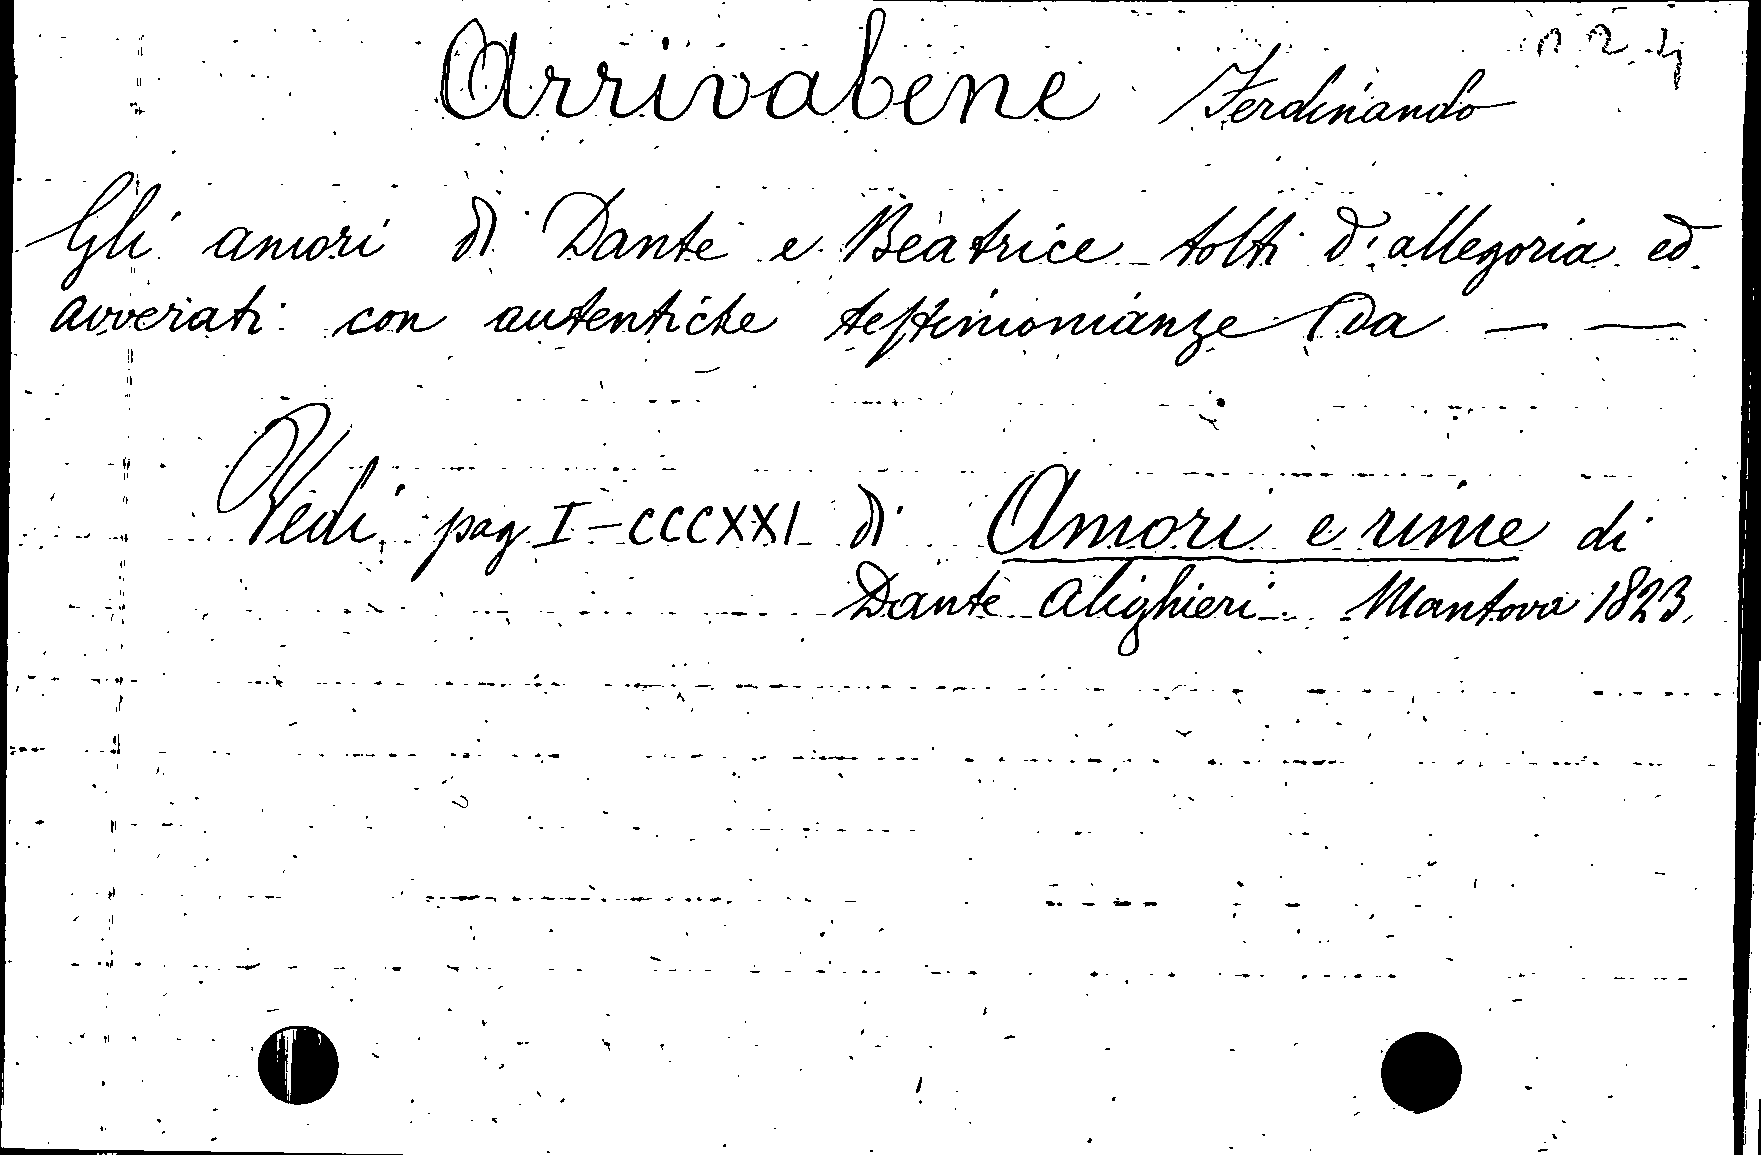 Arrivabene Ferdinando
Gli amori di Dante e Beatrice tolti d'allegoria ed
avverati con autentiche testimonianze da — —
Vedi pag I-CCCXXI di Amori e rime di
Dante Alighieri. Mantova 1823.